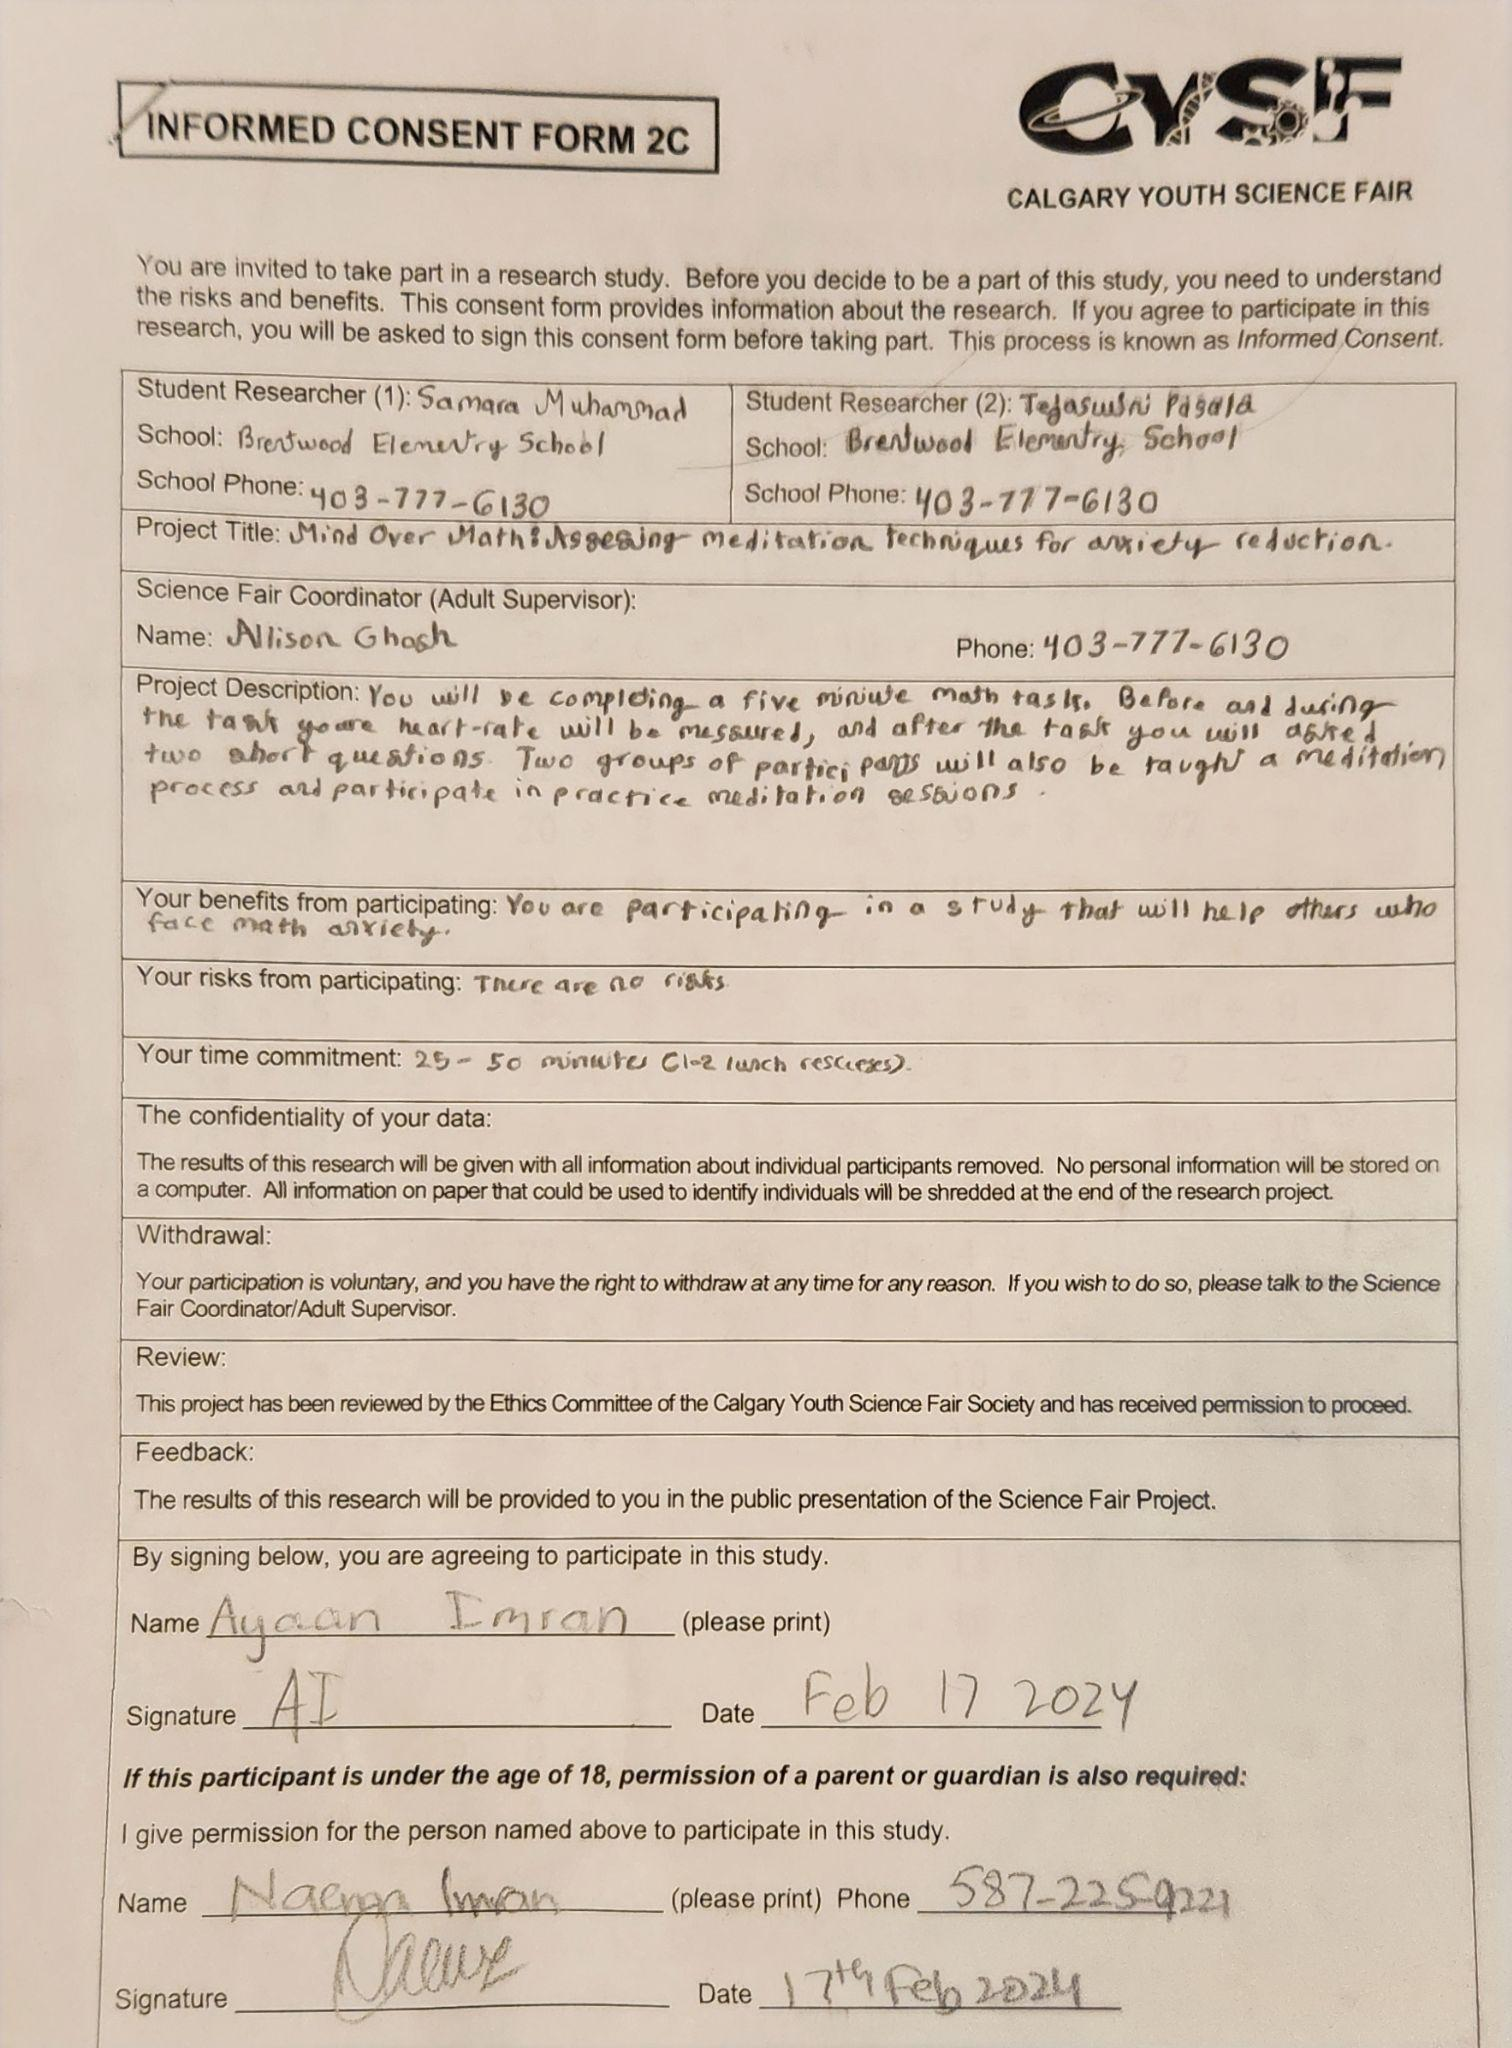 INFORMED CONSENT FORM 2C
CYSF
CALGARY YOUTH SCIENCE FAIR
You are invited to take part in a research study. Before you decide to be a part of this study, you need to understand
the risks and benefits. This consent form provides information about the research. If you agree to participate in this
research, you will be asked to sign this consent form before taking part. This process is known as Informed Consent.
Student Researcher (1): Samara Muhammad
School: Brentwood Elementry School
School Phone: 403-777-6130
Student Researcher (2): Tejaswini Pagala
School: Brentwood Elementry School
School Phone: 403-777-6130
Project Title: Mind Over Math: Assesing meditation techniques for anxiety reduction.
Science Fair Coordinator (Adult Supervisor):
Name: Allison Ghosh Phone: 403-777-6130
Project Description: You will be completing a five miniute math task. Before and during
the task youare heart-rate will be messured, and after the task you will asked
two short questions. Two groups of participants will also be taught a meditation
process and participate in practice meditation sessions.
Your benefits from participating: You are participating in a study that will help others who
face math anxiety.
Your risks from participating: There are no risks
Your time commitment: 25 - 50 miniutes (1-2 lunch rescieses).
The confidentiality of your data:
The results of this research will be given with all information about individual participants removed. No personal information will be stored on
a computer. All information on paper that could be used to identify individuals will be shredded at the end of the research project.
Withdrawal:
Your participation is voluntary, and you have the right to withdraw at any time for any reason. If you wish to do so, please talk to the Science
Fair Coordinator/Adult Supervisor.
Review:
This project has been reviewed by the Ethics Committee of the Calgary Youth Science Fair Society and has received permission to proceed.
Feedback:
The results of this research will be provided to you in the public presentation of the Science Fair Project.
By signing below, you are agreeing to participate in this study.
Name Ayaan Imran (please print)
Signature AI Date Feb 17 2024
If this participant is under the age of 18, permission of a parent or guardian is also required:
I give permission for the person named above to participate in this study.
Name Naema Imran (please print) Phone 587-225-9221
Signature Date 17th Feb 2024